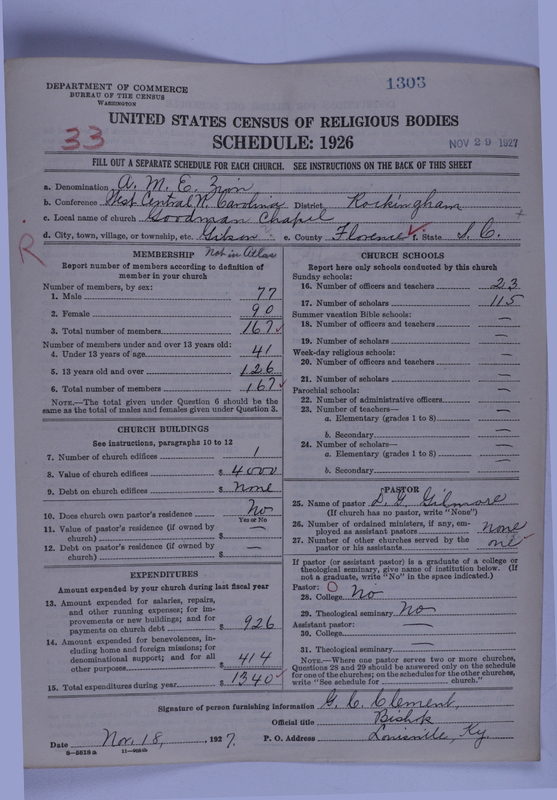 1303
DEPARTMENT OF COMMERCE
BUREAU OF THE CENSUS
WASHINGTON
UNITED STATES CENSUS OF RELIGIOUS BODIES
33
SCHEDULE: 1926
NOV 29 1927
FILL OUT A SEPARATE SCHEDULE FOR EACH CHURCH. SEE INSTRUCTIONS ON THE BACK OF THIS SHEET
a. Denomination A. M. E. Zion
b. Conference West Central N. Carolina District Rockingham
c. Local name of church Goodman Chapel
d. City, town, village, or township, etc. Gibson e. County Florence f. State S. C.
R
MEMBERSHIP Not in Atlas
Report number of members according to definition of member in your church
Number of members, by sex:
1. Male 77
2. Female 90
3. Total number of members 167
Number of members under and over 13 years old:
4. Under 13 years of age 41
5. 13 years old and over 126
6. Total number of members 167
NOTE.—The total given under Question 6 should be
same as the total of males and females given under Question 3.
CHURCH BUILDINGS
See instructions, paragraphs 10 to 12
7. Number of church edifices 1
8. Value of church edifices $ 4000
9. Debt on church edifices $ None
10. Does church own pastor's residence No
Yes or No
11. Value of pastor's residence (if owned by
church) $ —
12. Debt on pastor's residence (if owned by
church) $ —
EXPENDITURES
Amount expended by your church during last fiscal year
13. Amount expended for salaries, repairs,
and other running expenses; for im-
provements or new buildings; and for
payments on church debt $ 926
14. Amount expended for benevolences, in-
cluding home and foreign missions; for
denominational support; and for all
other purposes $ 414
15. Total expenditures during year $ 1340
CHURCH SCHOOLS
Report here only schools conducted by this church
Sunday schools:
16. Number of officers and teachers 23
17. Number of scholars 115
Summer vacation Bible schools:
18. Number of officers and teachers —
19. Number of scholars —
Week-day religious schools:
20. Number of officers and teachers —
21. Number of scholars —
Parochial schools:
22. Number of administrative officers —
23. Number of teachers—
a. Elementary (grades 1 to 8) —
b. Secondary —
24. Number of scholars—
a. Elementary (grades 1 to 8) —
b. Secondary —
PASTOR
25. Name of pastor Gilmore
(If church has no pastor, write "None")
26. Number of ordained ministers, if any, em-
ployed as assistant pastors none
27. Number of other churches served by the
pastor or his assistants one
If pastor (or assistant pastor) is a graduate of a college or
theological seminary, give name of institution below. (If
not a graduate, write "No" in the space indicated.)
Pastor: O
28. College No
29. Theological seminary No
Assistant pastor:
30. College —
31. Theological seminary —
NOTE.—Where one pastor serves two or more churches,
Questions 28 and 29 should be answered only on the schedule
for one of the churches; on the schedules for the other churches,
write "See schedule for church."
Signature of person furnishing information G. C. Clement,
Official title Bishop
Date Nov. 18, 1927. P. O. Address Louisville, Ky.